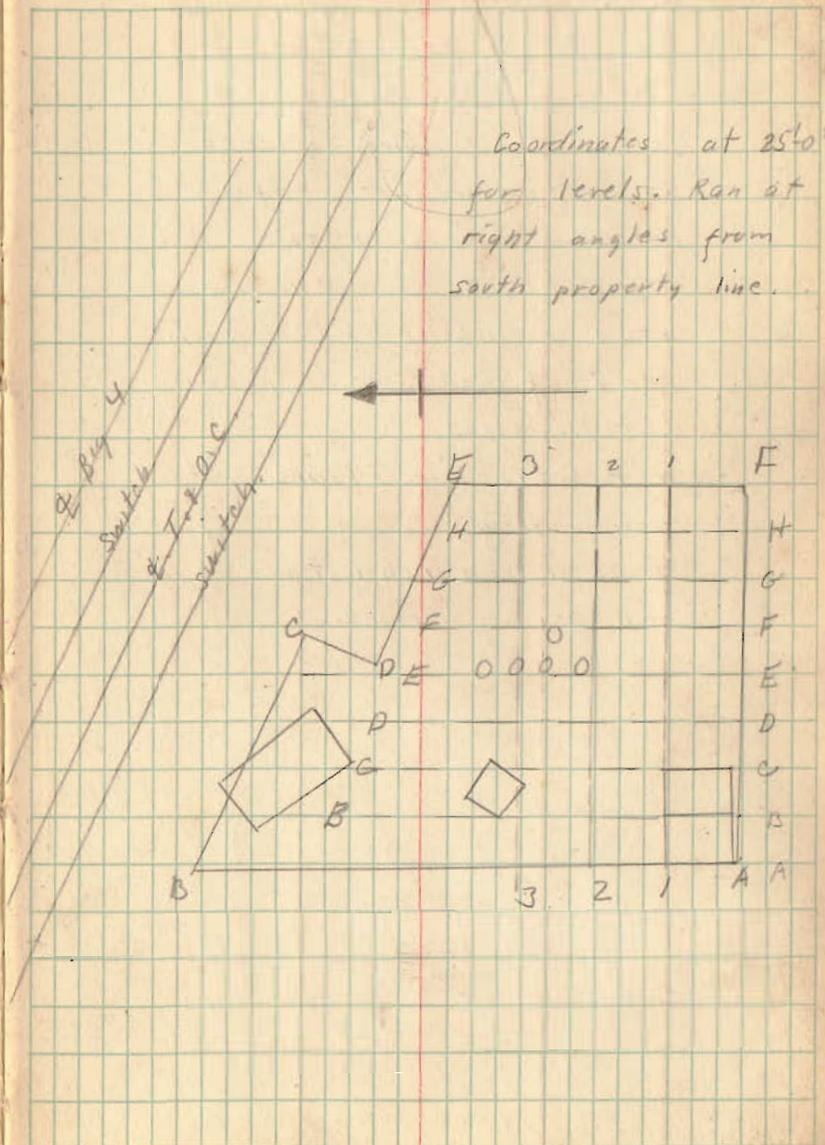 Coordinates at 25'-0
for levels. Ran at
right angles from
south property line.
℄ Big 4
switch
℄ I. & O. C
switch.
E 3 2 1 F
H H
G G
F F
C
D E E
D D
G C
B B
B 3 2 1 A A